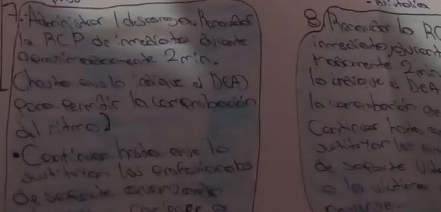 7. Administrar 1 descarga. Reanudar
la RCP de inmediato durante
aproximadamente 2 min.
(hasta que lo indique el DEA)
para permitir la comprobación
del ritmo]
• Continuar hasta que lo
sustituyan los profesionales
de soporte avanzado
8. Reanudar la RC
inmediato durant
2 min
lo indique el DEA
la comprobación de
Continuar hasta
sustituyan los
de soporte vit
o la víctima